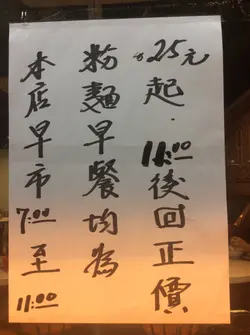 本店早市7:00至11:00
粉麵早餐均為
$25元起.11:00後回正價